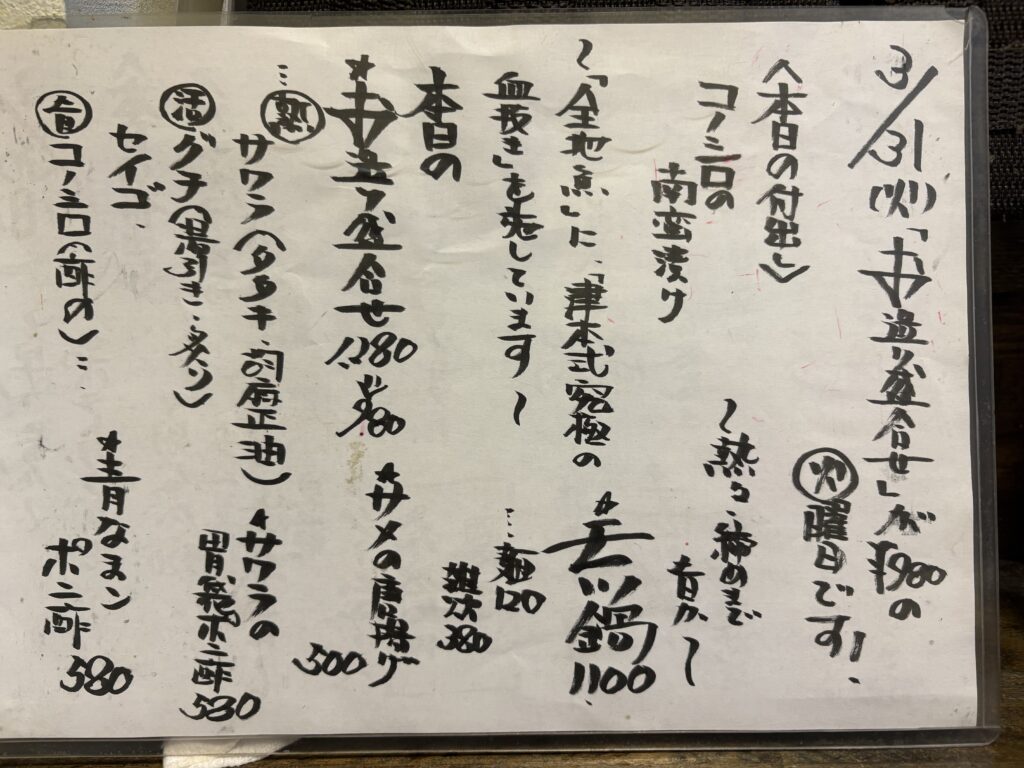 3/31(火)「お造り盛合せ」が¥980の
火曜日です!
〈本日の付出し〉
コノシロの
南蛮漬け
〜「全地魚」に、「津本式究極の
血抜き」を施しています〜
本日の
★お造り盛合せ
1280
¥980
…熟
サワラ(タタキ、胡麻正油)
活グチ(湯引き・炙り)
セイゴ、
コノシロ(酢〆)…
〜熱々・締めまで
旨く〜
★モツ鍋
1100
…麺120
雑炊380
★サメの唐揚げ
500
★サワラの
胃袋ポン酢
530
★青なまこ
ポン酢
580